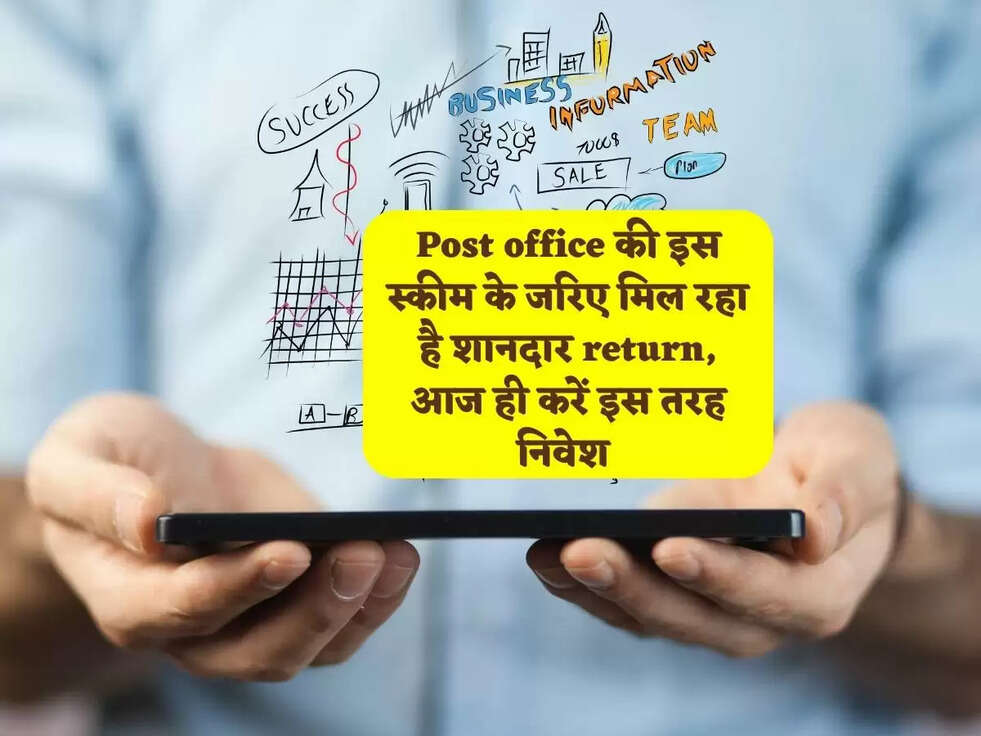 SUCCESS
BUSINESS
INFORMATION
TEAM
SALE
Plan
Post office की इस
स्कीम के जरिए मिल रहा
है शानदार return,
आज ही करें इस तरह
निवेश
A
B